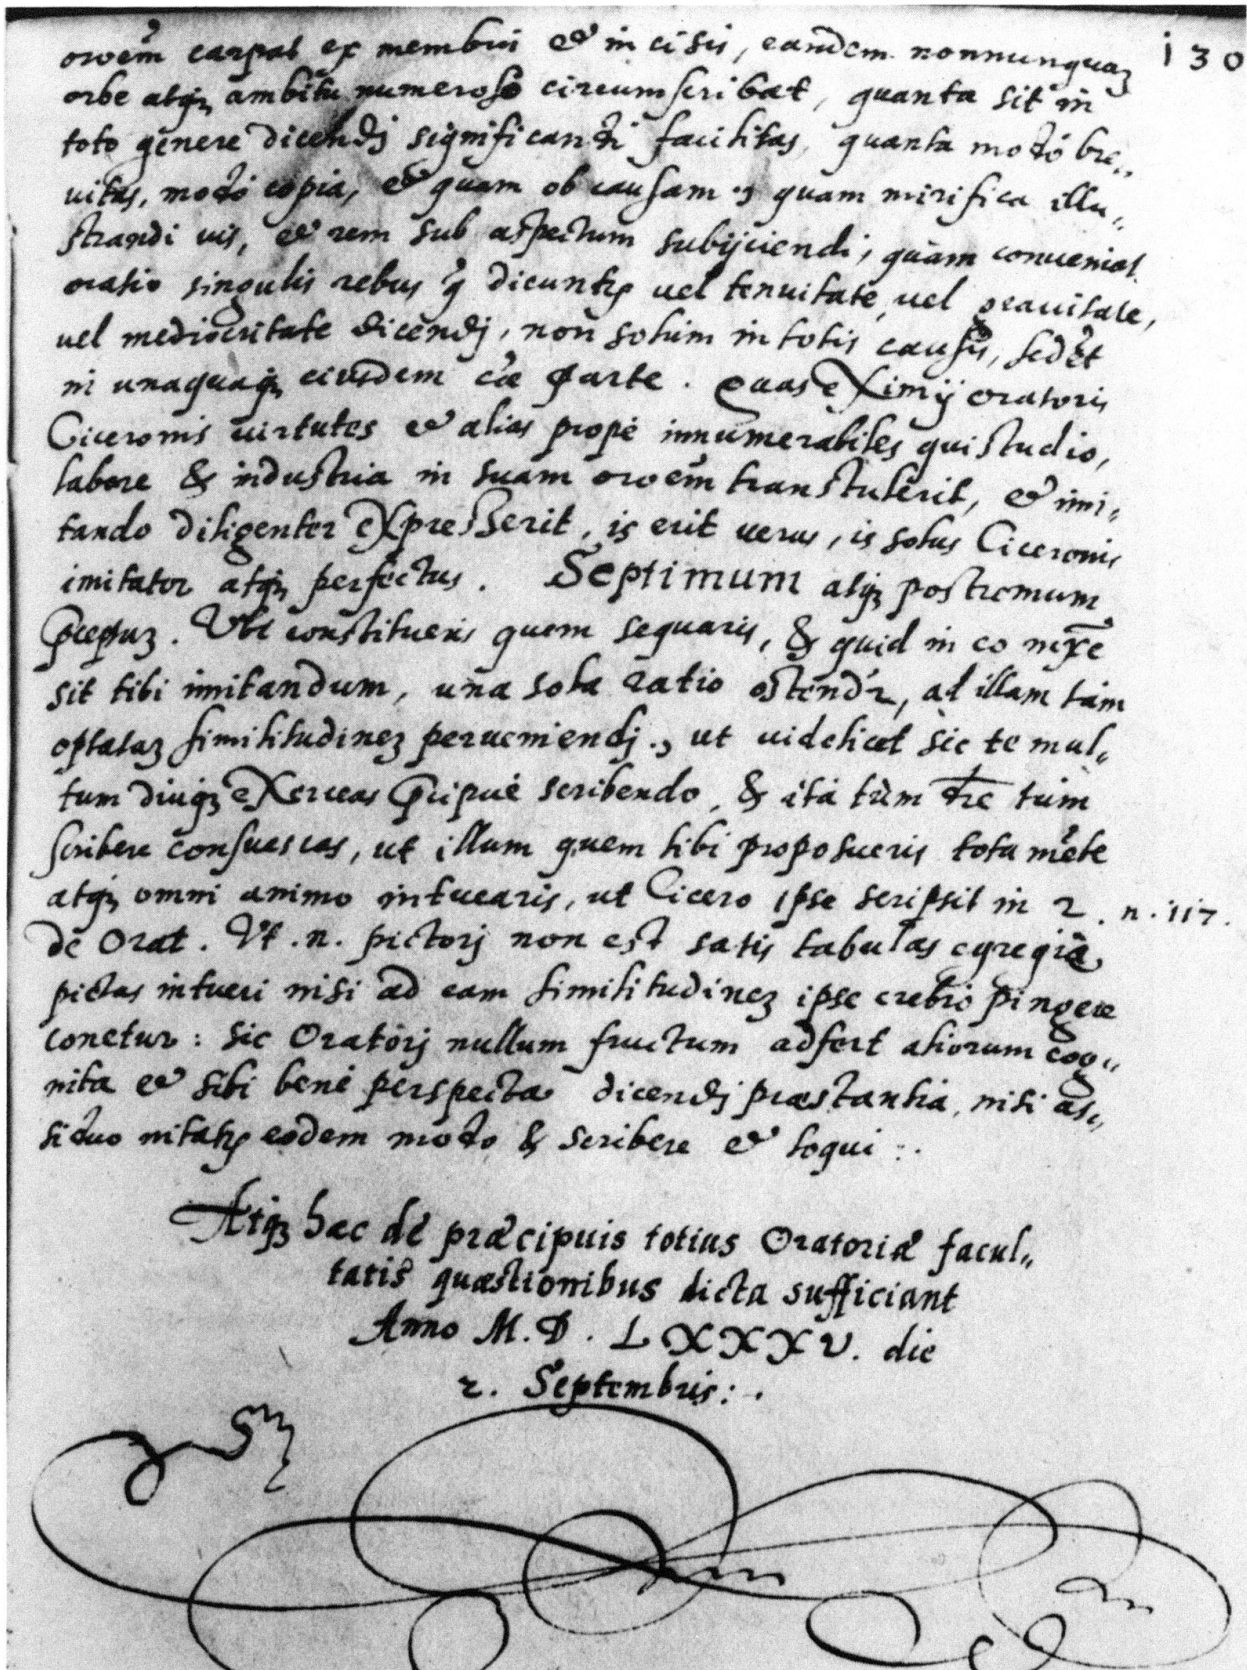 130
oroēm carpat ex membris & incisis, eandem nonnunquaʒ
orbe atqʒ ambitu numeroso circumscribat, quanta sit in
toto genere dicendj significandi facilitas, quanta modò bre„
uitas, modò copia, & quam ob causam ., quam mirifica illu„
strandi uis, & rem sub aspectum subijciendi, quàm conueniat
oratio singulis rebus q̃ dicuntꝛ uel tenuitate, uel grauitate,
uel mediocritate dicendj, non solum in totis causis, sed et
in unaquaqʒ eiusdem cãe parte. Quas eximij oratoris
Ciceronis uirtutes & alias propè innumerabiles qui studio,
labore & industria in suam oroēm transtulerit, & imi„
tando diligenter expresserit, is erit uerus, is solus Ciceronis
imitator atqʒ perfectus. Septimum atqʒ postremum
p̃ceptuʒ. Vbi constitueris quem sequaris, & quid in eo mx̃e
sit tibi imitandum, una sola ratio ostendr̃, ad illam tàm
optataʒ similitudineʒ perueniendj., ut uidelicet sic te mul„
tum diuqʒ exerceas p̃cipuè scribendo, & ita tùm tum
scribere consuescas, ut illum quem tibi proposueris tota mẽte
atqʒ omni animo intuearis, ut Cicero ipse scripsit in 2. n. 117.
de Orat. Vt .n. pictorj non est satis tabulas egregiè
pictas intueri nisi ad eam similitudineʒ ipse crebrò pingere
conetur: sic Oratorj nullum fructum adfert aliorum cog„
nita & sibi benè perspecta dicendj præstantia, nisi as„
siduo nitatꝛ eodem modo & scribere & loqui :.
Atqʒ hæc de præcipuis totius Oratoriæ facul„
tatis quæstionibus dicta sufficiant
Anno M.D. LXXXV. die
2. Septembris:.